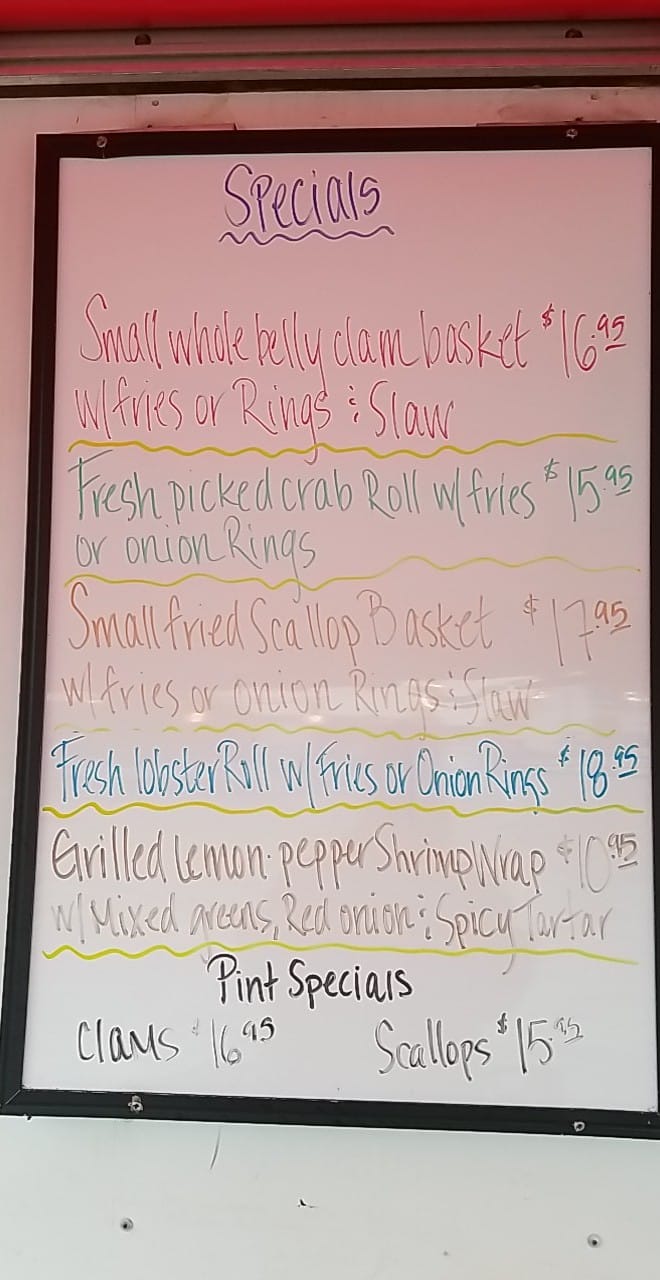 Specials
Small whole belly clam basket $16.95
w/fries or Rings & Slaw
Fresh picked crab Roll w/fries $15.95
or onion Rings
Small fried Scallop Basket $17.95
w/fries or onion Rings & Slaw
Fresh lobster Roll w/fries or Onion Rings $18.95
Grilled lemon-pepper Shrimp Wrap $10.95
w/Mixed greens, Red onion & Spicy Tartar
Pint Specials
Clams $16.95 Scallops $15.95